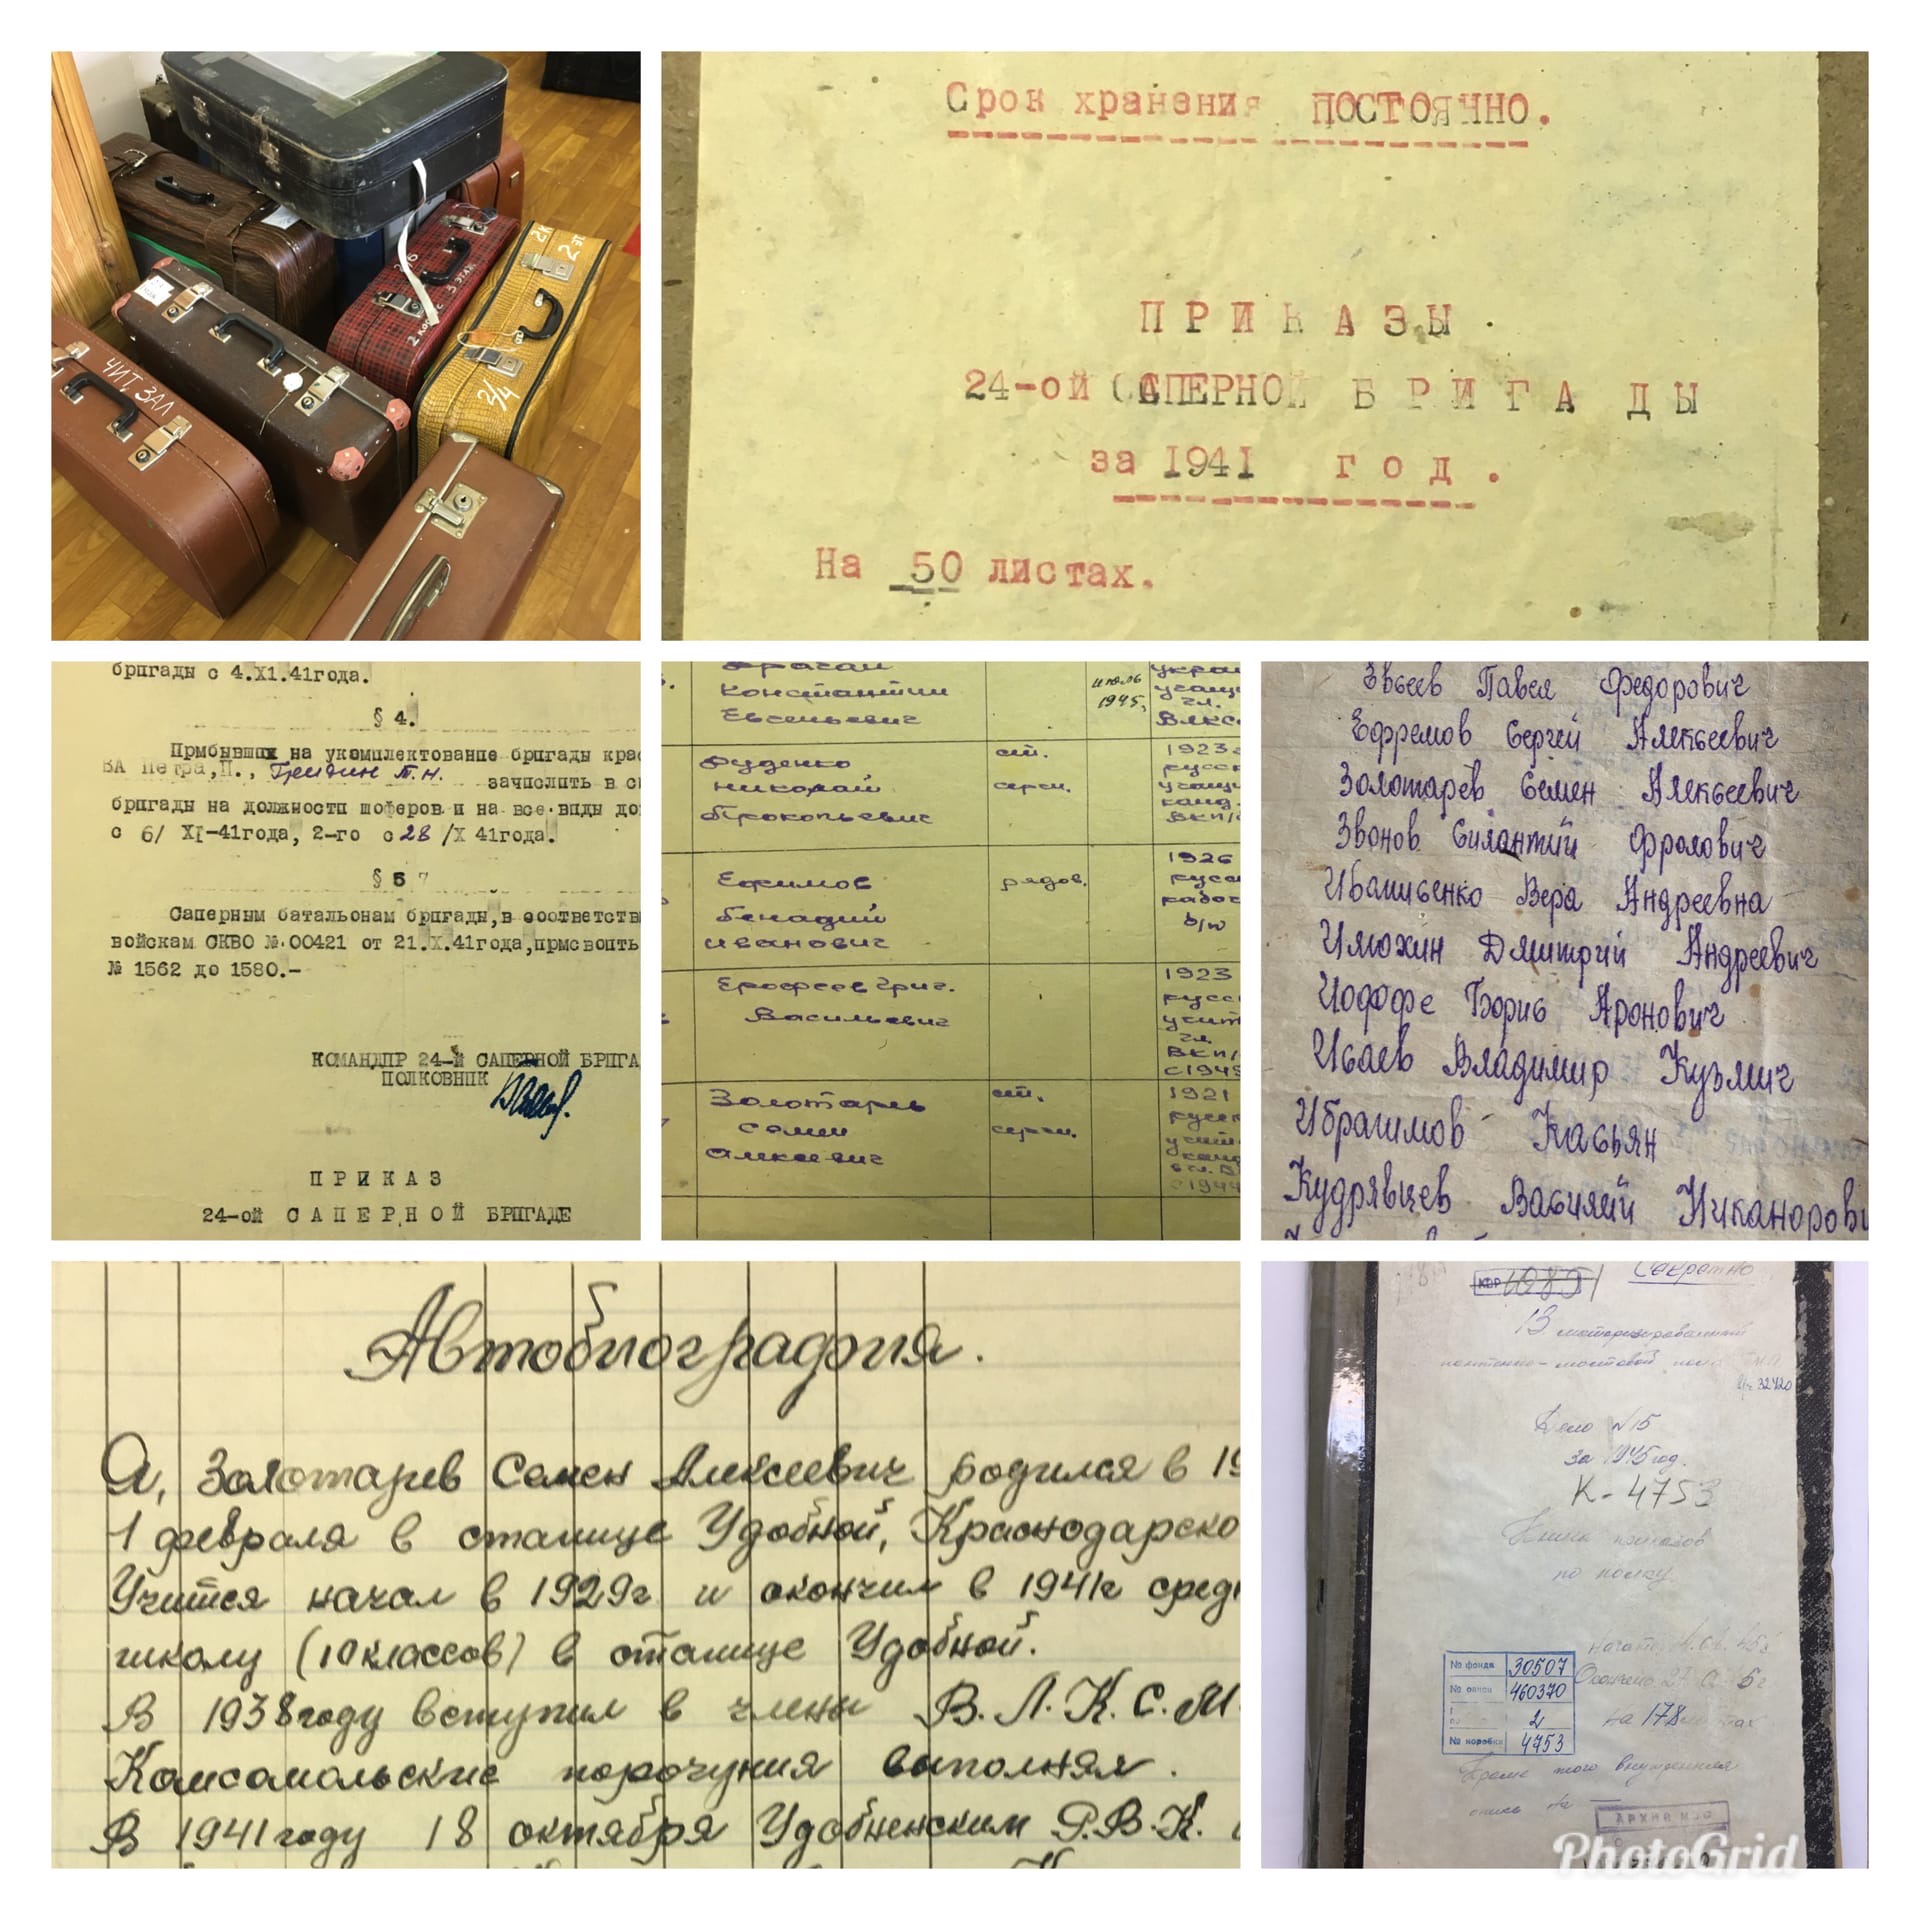 ЧИТ. ЗАЛ
3 ЭТАЖ
2/4
Срок хранения ПОСТОЯННО.
ПРИКАЗЫ
24-ой САПЕРНОЙ БРИГАДЫ
за 1941 год.
На 50 листах.
бригады с 4.XI.41года.
§ 4.
Прмбывших на укомплектование бригады крас
ВА Петра,П., Грейдин П.Н.
зачислить в с
бригады на должности шоферов и на все виды до
с 6/ XI-41года, 2-го с 28 /X 41года.
§ 5
Саперным батальонам бригады,в соответств
войскам СКВО №.00421 от 21.X.41года,прмсвоить
№ 1562 до 1580.-
КОМАНДИР 24-й САПЕРНОЙ БРИГА
ПОЛКОВНИК
ПРИКАЗ
24-ой САПЕРНОЙ БРИГАДЕ
Константин
Евсеньевич
июль
1945,
Руденко
Николай
Прокопьевич
ст.
серж.
1923
Ефимов
Генадий
Иванович
рядов.
1926
б/п
Ерофеев Григ.
Васильевич
1923
Золотарев
Семен
Алексеевич
ст.
серж.
1921
с 1944
Евсеев Павел Федорович
Ефремов Сергей Алексеевич
Золотарёв Семен Алексеевич
Звонов Силантий Фролович
Иванисенко Вера Андреевна
Илюхин Дмитрий Андреевич
Иоффе Борис Аронович
Исаев Владимир Кузмич
Ибрагимов Касьян
Кудрявцев Василий Никанорови
Автобиография.
Я, Золотарев Семен Алексеевич родился в 19
1 февраля в станице Удобной, Краснодарско
Учится начал в 1929г и окончил в 1941г сред
школу (10 классов) в станице Удобной.
В 1938году вступил в члены В.Л.К.С.М.
Комсомольские порочуния выполнял.
В 1941году 18 октября Удобненским Р.В.К.
Секретно
13 моторизированный
понтонно-мостовой полк
32420
Дело №15
за 1945год.
К-4753
Книга приказов
по полку
Окончено 27
на 178 листах
№ фонда 30507
№ описи 460370
2
№ коробки 4753
Кроме того внутренняя
опись на
АРХИВ МВС
PhotoGrid